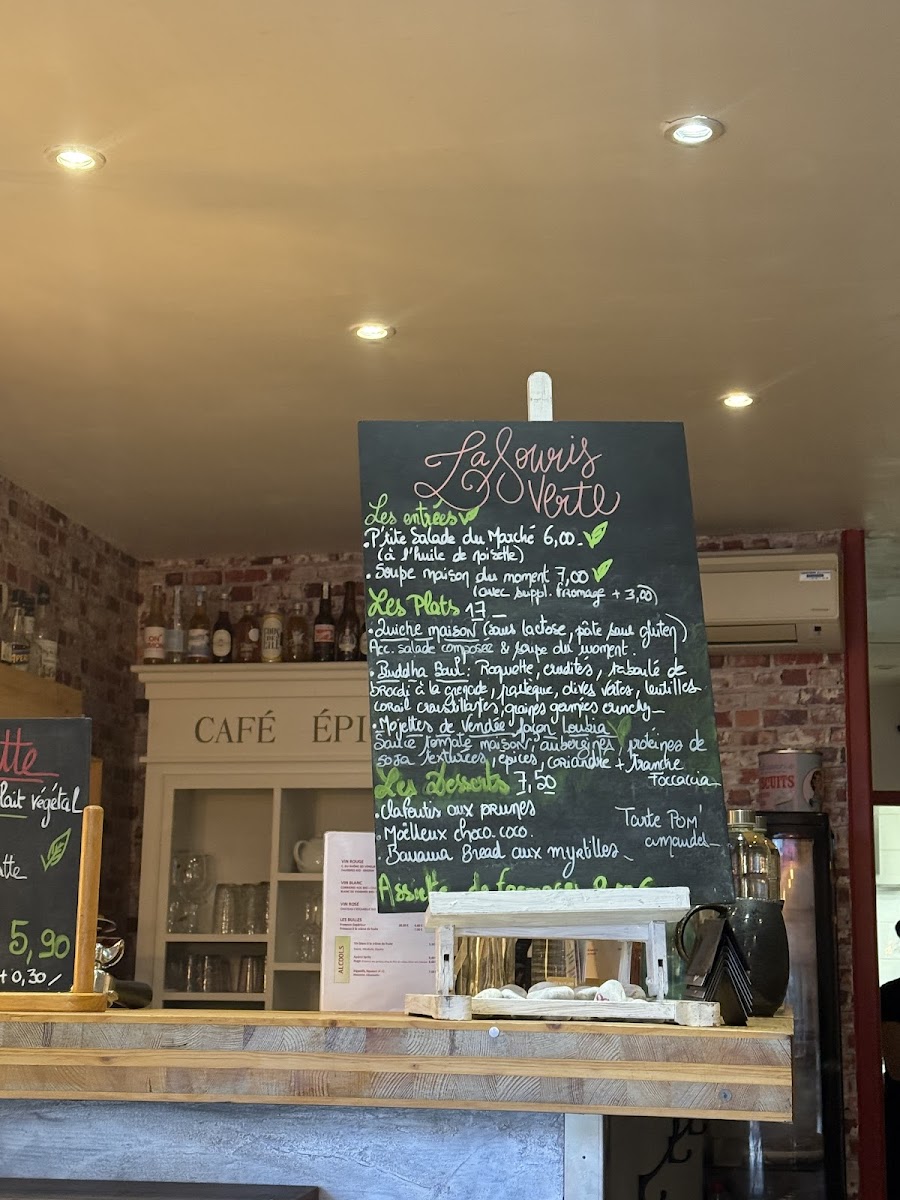 La Souris
Verte
Les entrées
. P'tite Salade du Marché 6,00 -
(à l'huile de noisette)
. Soupe maison du moment 7,00
(avec suppl. fromage + 3,00)
Les Plats 17 -
. Quiche maison (sans lactose, pâte sans gluten)
Acc. salade composée & soupe du moment.
. Buddha Baul: Roquette, crudités, taboulé de
brocoli à la grenade, pastèque, olives vertes, lentilles
corail croustillantes, graines garnies crunchy -
. Mojettes de Vendée façon Loubia
Sauce tomate maison, aubergines, protéines de
soja texturées, épices, coriandre + Tranche
Foccaccia
Les Desserts 7,50
. Clafoutis aux prunes
. Moëlleux choco. coco.
. Banana Bread aux myrtilles -
Tarte Pom'
amandes -
Assiette de fromages
tte
lait végétal
tte
5,90
+ 0,30/
CAFÉ ÉPI
VIN ROUGE
VIN BLANC
VIN ROSÉ
LES BULLES
ALCOOLS
SCUITS